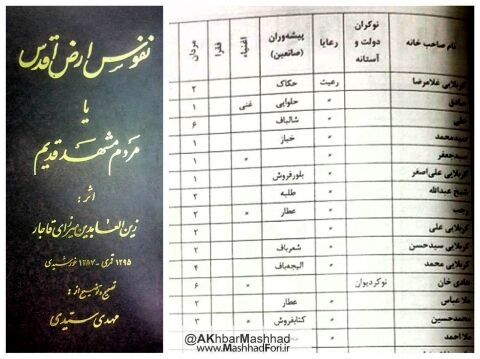 نفوس ارض اقدس
یا
مردم مشهد قدیم
اثر:
زین العابدین میرزای قاجار
۱۲۹۵ قمری - ۱۲۵۷ خورشیدی
تصحیح و توضیح از:
مهدی سیّدی
نام صاحب خانه نوکران دولت و آستانه رعایا پیشه‌وران (صانعین) اغنیاء فقرا مردان
کربلایی غلامرضا رعیت حکاک ۲
صادق ״ حلوایی غنی ۱
علی ״ شالباف ۶
سیدمحمد ״ خباز ۱
سیدجعفر ״ ״ ۱
کربلایی علی‌اصغر ״ بلورفروش ۱
شیخ عبدالله ״ طلبه ۲
رجب ״ عطار ״ ۲
کربلایی علی ״ ۲
کربلایی سیدحسن ״ شعرباف ۲
کربلایی محمد ״ الیجه‌باف ۴
هادی خان نوکردیوان ״ ۶
ملاعباس ״ عطار ۲
محمدحسین ״ کتابفروش ״ ۳
ملا احمد ״
@AKhbarMashhad
www.MashhadFori.ir